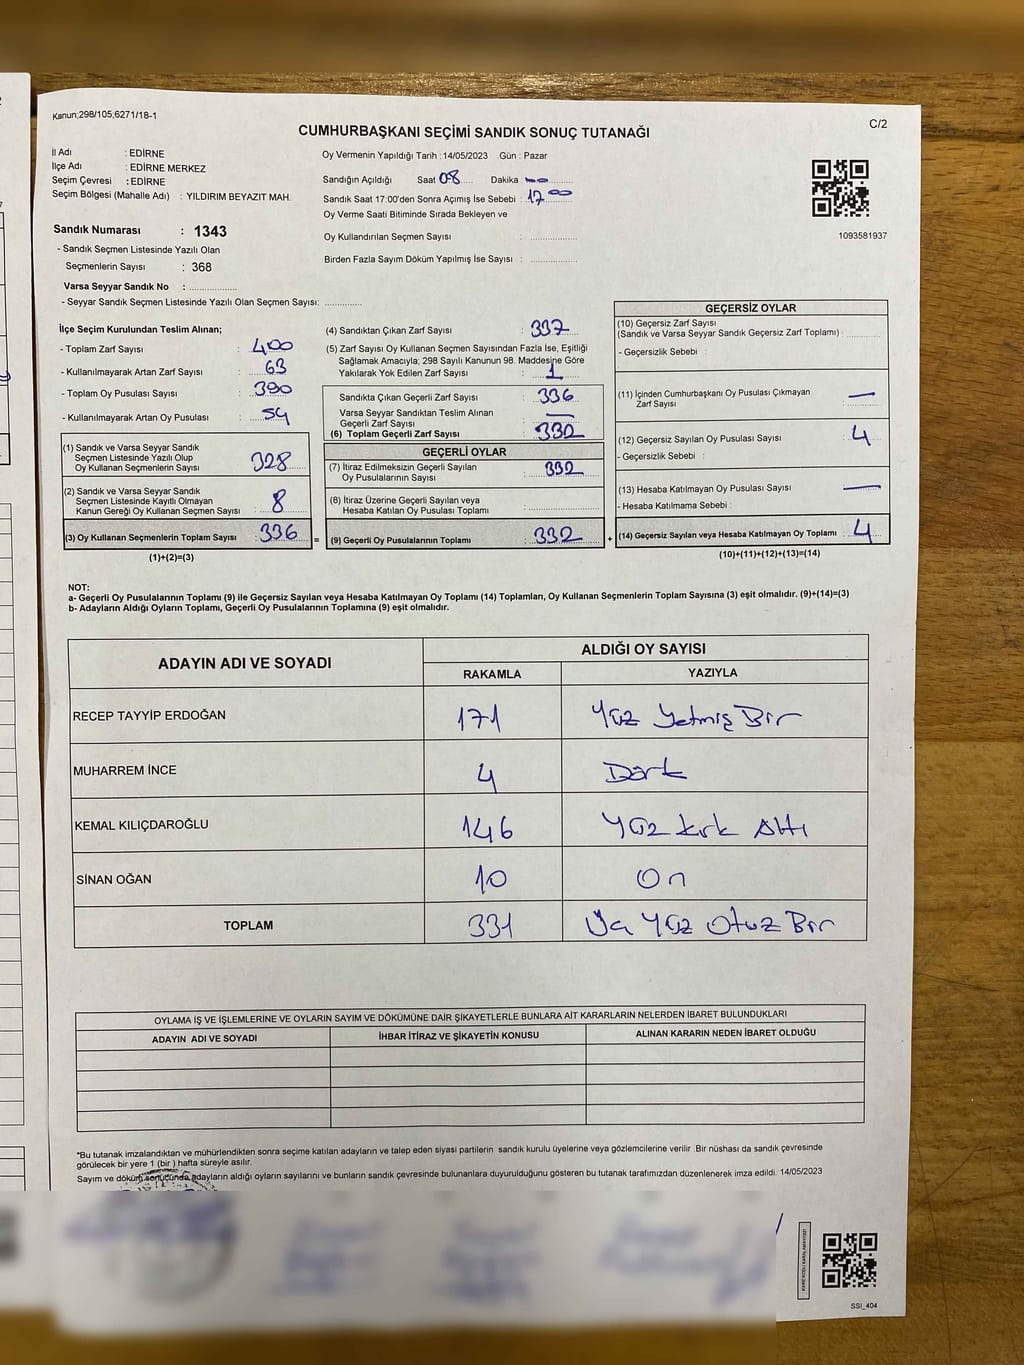 Kanun;298/105,6271/18-1
C/2
CUMHURBAŞKANI SEÇİMİ SANDIK SONUÇ TUTANAĞI
İl Adı : EDİRNE
İlçe Adı : EDİRNE MERKEZ
Seçim Çevresi : EDİRNE
Seçim Bölgesi (Mahalle Adı) : YILDIRIM BEYAZIT MAH.
Sandık Numarası : 1343
- Sandık Seçmen Listesinde Yazılı Olan
Seçmenlerin Sayısı : 368
Varsa Seyyar Sandık No :
- Seyyar Sandık Seçmen Listesinde Yazılı Olan Seçmen Sayısı:
Oy Vermenin Yapıldığı Tarih :14/05/2023 Gün : Pazar
Sandığın Açıldığı Saat 08 Dakika
Sandık Saat 17:00'den Sonra Açımış İse Sebebi : 17 00
Oy Verme Saati Bitiminde Sırada Bekleyen ve
Oy Kullandırılan Seçmen Sayısı :
Birden Fazla Sayım Döküm Yapılmış İse Sayısı :
1093581937
İlçe Seçim Kurulundan Teslim Alınan;
- Toplam Zarf Sayısı : 400
- Kullanılmayarak Artan Zarf Sayısı : 63
- Toplam Oy Pusulası Sayısı : 390
- Kullanılmayarak Artan Oy Pusulası : 54
(1) Sandık ve Varsa Seyyar Sandık
Seçmen Listesinde Yazılı Olup
Oy Kullanan Seçmenlerin Sayısı 328
(2) Sandık ve Varsa Seyyar Sandık
Seçmen Listesinde Kayıtlı Olmayan
Kanun Gereği Oy Kullanan Seçmen Sayısı : 8
(3) Oy Kullanan Seçmenlerin Toplam Sayısı : 336
(1)+(2)=(3)
=
(4) Sandıktan Çıkan Zarf Sayısı : 337
(5) Zarf Sayısı Oy Kullanan Seçmen Sayısından Fazla İse, Eşitliği
Sağlamak Amacıyla; 298 Sayılı Kanunun 98. Maddesine Göre
Yakılarak Yok Edilen Zarf Sayısı : 1
Sandıkta Çıkan Geçerli Zarf Sayısı : 336
Varsa Seyyar Sandıktan Teslim Alınan
Geçerli Zarf Sayısı :
(6) Toplam Geçerli Zarf Sayısı : 332
GEÇERLİ OYLAR
(7) İtiraz Edilmeksizin Geçerli Sayılan
Oy Pusulalarının Sayısı : 332
(8) İtiraz Üzerine Geçerli Sayılan veya
Hesaba Katılan Oy Pusulası Toplamı :
(9) Geçerli Oy Pusulalarının Toplamı : 332
+
GEÇERSİZ OYLAR
(10) Geçersiz Zarf Sayısı
(Sandık ve Varsa Seyyar Sandık Geçersiz Zarf Toplamı) :
- Geçersizlik Sebebi :
(11) İçinden Cumhurbaşkanı Oy Pusulası Çıkmayan
Zarf Sayısı : —
(12) Geçersiz Sayılan Oy Pusulası Sayısı : 4
- Geçersizlik Sebebi :
(13) Hesaba Katılmayan Oy Pusulası Sayısı : —
- Hesaba Katılmama Sebebi :
(14) Geçersiz Sayılan veya Hesaba Katılmayan Oy Toplamı : 4
(10)+(11)+(12)+(13)=(14)
NOT:
a- Geçerli Oy Pusulalarının Toplamı (9) ile Geçersiz Sayılan veya Hesaba Katılmayan Oy Toplamı (14) Toplamları, Oy Kullanan Seçmenlerin Toplam Sayısına (3) eşit olmalıdır. (9)+(14)=(3)
b- Adayların Aldığı Oyların Toplamı, Geçerli Oy Pusulalarının Toplamına (9) eşit olmalıdır.
ADAYIN ADI VE SOYADI ALDIĞI OY SAYISI
RAKAMLA YAZIYLA
RECEP TAYYİP ERDOĞAN 171 Yüz Yetmiş Bir
MUHARREM İNCE 4 Dört
KEMAL KILIÇDAROĞLU 146 Yüz kırk Altı
SİNAN OĞAN 10 On
TOPLAM 331 Üç Yüz Otuz Bir
OYLAMA İŞ VE İŞLEMLERİNE VE OYLARIN SAYIM VE DÖKÜMÜNE DAİR ŞİKAYETLERLE BUNLARA AİT KARARLARIN NELERDEN İBARET BULUNDUKLARI
ADAYIN ADI VE SOYADI İHBAR İTİRAZ VE ŞİKAYETİN KONUSU ALINAN KARARIN NEDEN İBARET OLDUĞU
*Bu tutanak imzalandıktan ve mühürlendikten sonra seçime katılan adayların ve talep eden siyasi partilerin sandık kurulu üyelerine veya gözlemcilerine verilir .Bir nüshası da sandık çevresinde
görülecek bir yere 1 (bir ) hafta süreyle asılır.
Sayım ve döküm sonucunda adayların aldığı oyların sayılarını ve bunların sandık çevresinde bulunanlara duyurulduğunu gösteren bu tutanak tarafımızdan düzenlenerek imza edildi. 14/05/2023
SSI_404